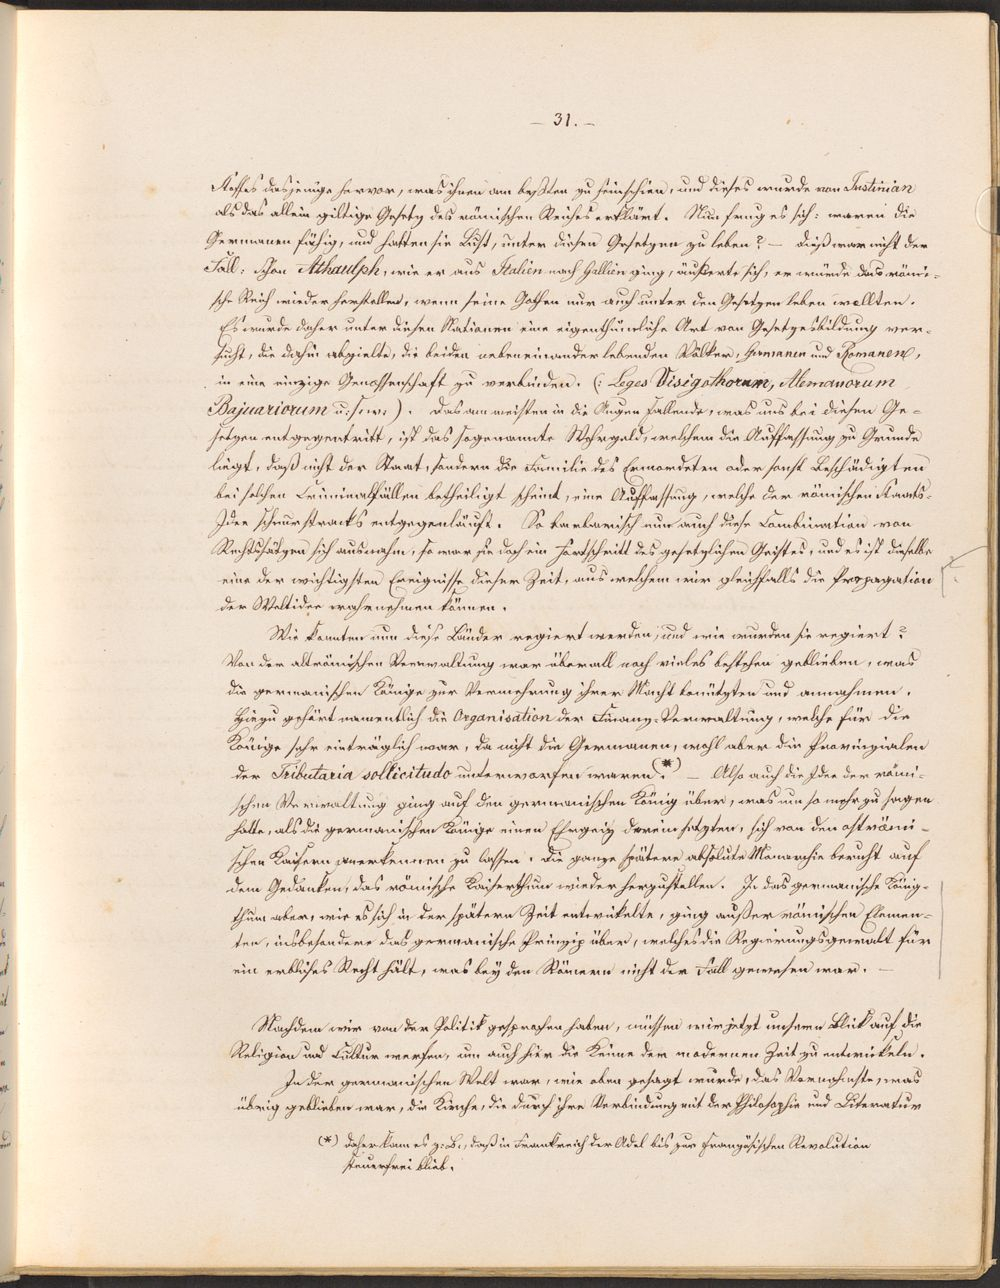 — 31. —
Stoffes dasjenige hervor, was ihnen am beßten zu sein schien, und dieses wurde von Justinian
als das allein giltige Gesetz des römischen Reiches erklärt. Nun frug es sich: waren die
Germanen fähig, und hatten sie Lust, unter diesen Gesetzen zu leben? — Dieß war nicht der
Fall: schon Athaulph, wie er aus Italien nach Gallien ging, äußerte sich, er würde das römi-
sche Reich wieder herstellen, wenn seine Gothen nur auch unter den Gesetzen leben wollten.
Es wurde daher unter diesen Nationen eine eigenthümliche Art von Gesetzesbildung ver-
sucht, die dahin abzielte, die beiden nebeneinander lebenden Völker, Germanen und Romanen,
in eine einzige Genossenschaft zu verbinden. (: Leges Visigothorum, Alemanorum
Bajuariorum u: s: w: ). Das am meisten in die Augen Fallende, was uns bei diesen Ge-
setzen entgegentritt, ist das sogenannte Wehrgeld, welchem die Auffassung zu Grunde
liegt, daß nicht der Staat, sondern die Familie des Ermordeten oder sonst Beschädigten
bei solchen Criminalfällen betheiligt scheint, eine Auffassung, welche der römischen Staats-
Idee schnurstracks entgegenläuft. So barbarisch nun auch diese Combination von
Rechtssätzen sich ausnahm, so war sie doch ein Fortschritt des gesetzlichen Geistes, und es ist dieselbe
eine der wichtigsten Ereignisse dieser Zeit, aus welchem wir gleichfalls die Propagation
der Weltidee wahrnehmen können.
Wie konnten nun diese Länder regiert werden, und wie wurden sie regiert?
Von der altrömischen Verwaltung war überall noch vieles bestehen geblieben, was
die germanischen Könige zur Vermehrung ihrer Macht benützten und annahmen.
Hiezu gehört namentlich die Organisation der Finanz-Verwaltung, welche für die
Könige sehr einträglich war, da nicht die Germanen, wohl aber die Provinzialen
der Tributaria sollicitudo unterworfen waren (*). — Also auch die Idee der römi-
schen Verwaltung ging auf den germanischen König über, was um so mehr zu sagen
hatte, als die germanischen Könige einen Ehrgeiz dareinsetzten, sich von den oströmi-
schen Kaisern anerkennen zu lassen. Die ganze spätere absolute Monarchie beruht auf
dem Gedanken, das römische Kaiserthum wieder herzustellen. In das germanische König-
thum aber, wie es sich in der spätern Zeit entwickelte, ging außer römischen Elemen-
ten, insbesondere das germanische Prinzip über, welches die Regierungsgewalt für
ein erbliches Recht hält, was bey den Römern nicht der Fall gewesen war. —
Nachdem wir von der Politik gesprochen haben, müssen wir jetzt unsern Blick auf die
Religion und Cultur werfen, um auch hier die Keime der modernen Zeit zu entwickeln.
In der germanischen Welt war, wie oben gesagt wurde, das Vornehmste, was
übrig geblieben war, die Kirche, die durch ihre Verbindung mit der Philosophie und Literatur
(*) Daher kam es z: B:, daß in Frankreich der Adel bis zur französischen Revolution
steuerfrei blieb.